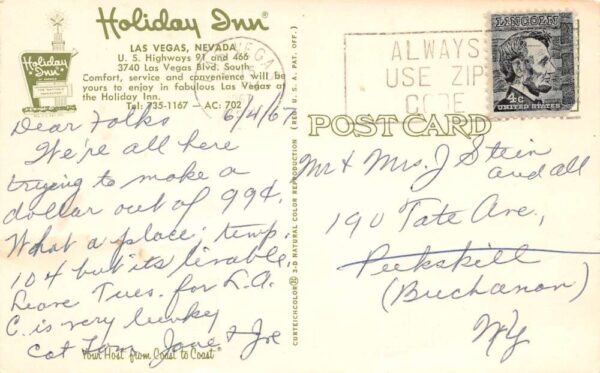 Holiday Inn
LAS VEGAS, NEVADA
U. S. Highways 91 and 466
3740 Las Vegas Blvd. South
Comfort, service and convenience will be
yours to enjoy in fabulous Las Vegas at
the Holiday Inn.
Tel: 735-1167 - AC: 702
Holiday Inn
Dear Folks 6/4/67
We're all here
trying to make a
dollar out of 99¢.
What a place; temp.
104 but its livable.
Leave Tues. for L.A.
C. is very lucky
Love Jane & Joe
Your Host from Coast to Coast
CURTEICHCOLOR 3-D NATURAL COLOR REPRODUCTION (REG. U.S.A. PAT. OFF.)
VEGA
ALWAYS
USE ZIP
CODE
LINCOLN
4¢
UNITED STATES
POST CARD
Mr & Mrs. J Stein
and all
190 Tate Ave.,
Peekskill
(Buchanan)
NY